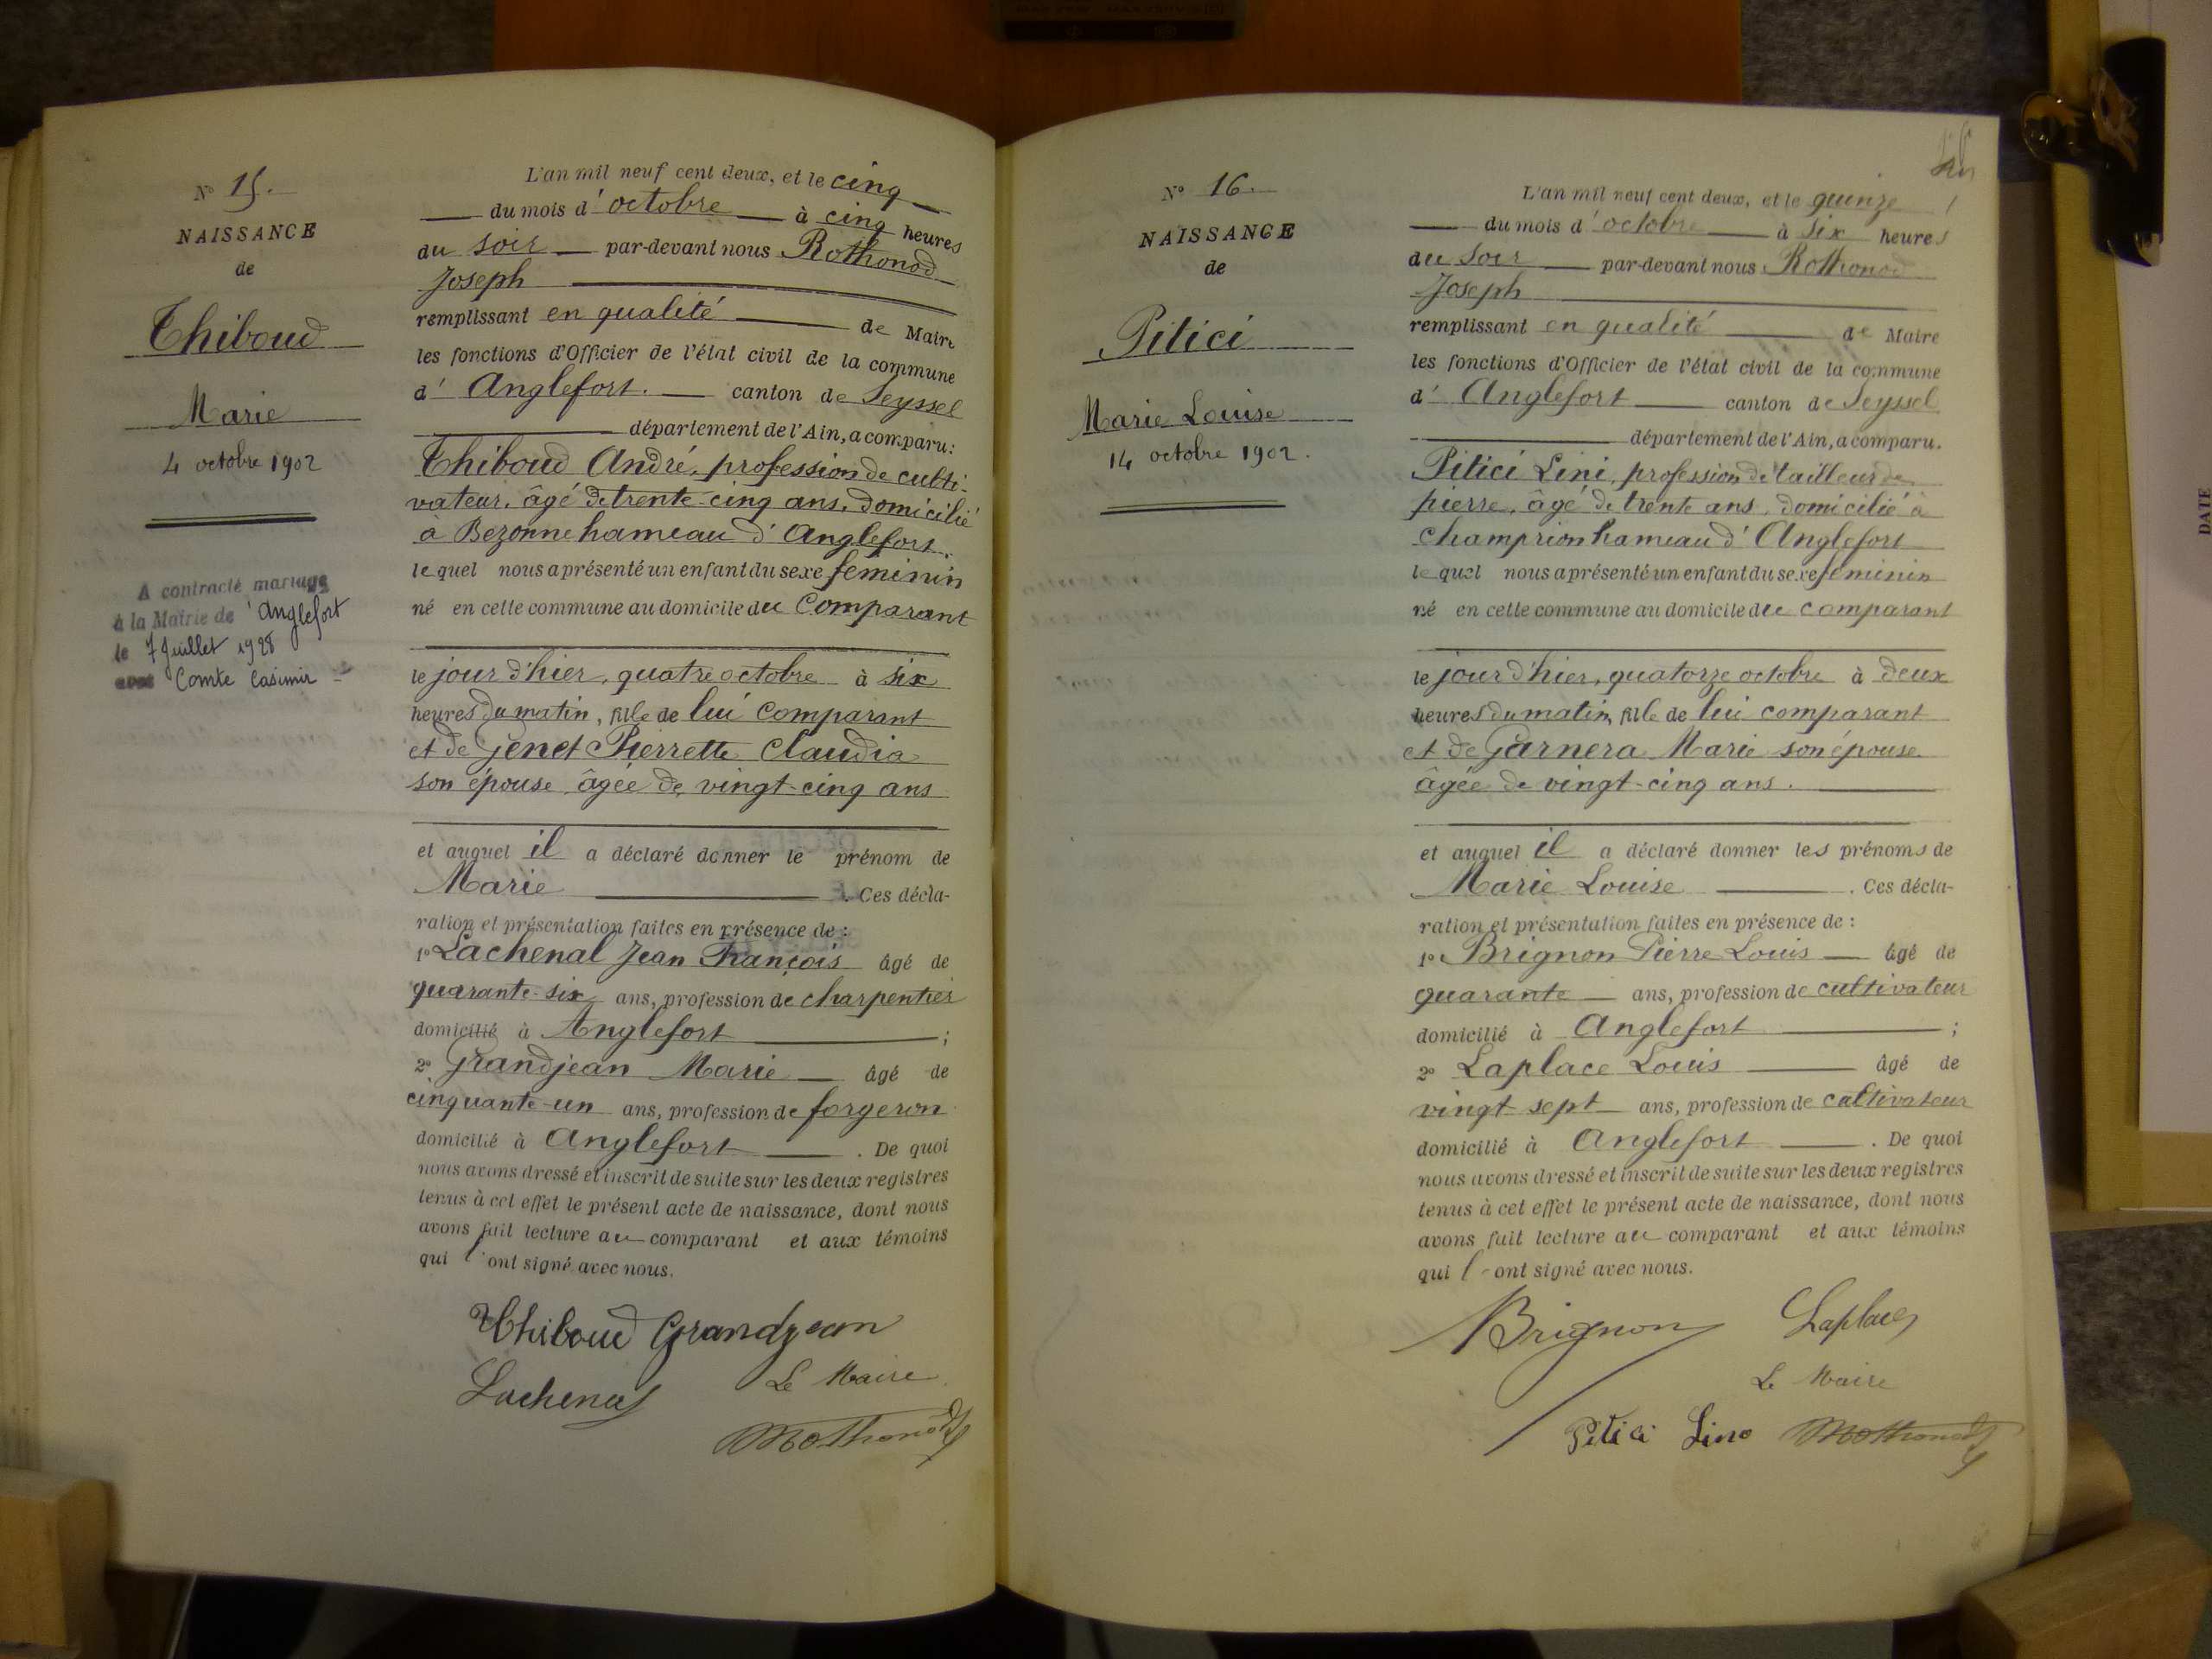 N° 15.
NAISSANCE
de
Thiboud
Marie
4 octobre 1902
A contracté mariage
à la Mairie de Anglefort
le 7 Juillet 1928
avec Comte Casimir
L'an mil neuf cent deux, et le cinq
du mois d'octobre à cinq heures
du soir par-devant nous Rothonod
Joseph
remplissant en qualité de Maire
les fonctions d'Officier de l'état civil de la commune
d' Anglefort. canton de Seyssel
département de l'Ain, a comparu:
Thiboud André, profession de culti-
vateur, âgé de trente-cinq ans, domicilié
à Bezonne hameau d'Anglefort.
lequel nous a présenté un enfant du sexe feminin
né en cette commune au domicile du Comparant
le jour d'hier, quatre octobre à six
heures du matin, fille de lui Comparant
et de Genet Pierrette Claudia
son épouse âgée de vingt-cinq ans
et auquel il a déclaré donner le prénom de
Marie . Ces décla-
ration et présentation faites en présence de :
1° Lachenal Jean François âgé de
quarante-six ans, profession de charpentier
domicilié à Anglefort ;
2° Grandjean Marie âgé de
cinquante-un ans, profession de forgeron
domicilié à Anglefort . De quoi
nous avons dressé et inscrit de suite sur les deux registres
tenus à cet effet le présent acte de naissance, dont nous
avons fait lecture au comparant et aux témoins
qui l'ont signé avec nous.
Thiboud Grandjean
Lachenal Le Maire
JRothonod
N° 16.
NAISSANCE
de
Pitici
Marie Louise
14 octobre 1902.
L'an mil neuf cent deux, et le quinze
du mois d'octobre à six heures
du soir par-devant nous Rothonod
Joseph
remplissant en qualité de Maire
les fonctions d'Officier de l'état civil de la commune
d' Anglefort canton de Seyssel
département de l'Ain, a comparu.
Pitici Lini, profession de tailleur de
pierre, âgé de trente ans, domicilié à
Champrion hameau d'Anglefort
lequel nous a présenté un enfant du sexe féminin
né en cette commune au domicile du comparant
le jour d'hier, quatorze octobre à deux
heures du matin, fille de lui comparant
et de Garnera Marie son épouse
âgée de vingt-cinq ans.
et auquel il a déclaré donner les prénoms de
Marie Louise . Ces décla-
ration et présentation faites en présence de :
1° Brignon Pierre Louis âgé de
quarante ans, profession de cultivateur
domicilié à Anglefort ;
2° Laplace Louis âgé de
vingt sept ans, profession de cultivateur
domicilié à Anglefort . De quoi
nous avons dressé et inscrit de suite sur les deux registres
tenus à cet effet le présent acte de naissance, dont nous
avons fait lecture au comparant et aux témoins
qui l'ont signé avec nous.
Brignon Laplace
Le Maire
Pitici Lino JRothonod
DATE